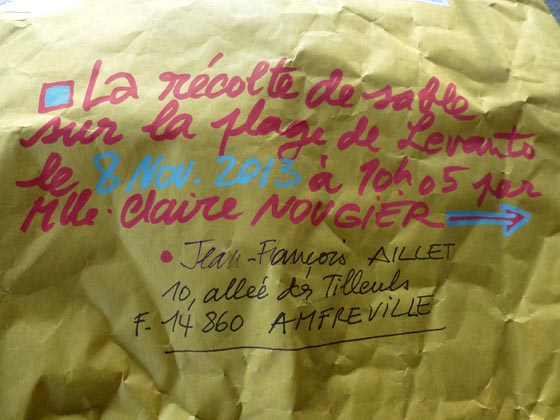 La récolte de sable
sur la plage de Levanto
le 8 Nov. 2013 à 10h.05 par
Mlle. Claire NOUGIER
Jean-François AILLET
10, allée des Tilleuls
F. 14 860 AMFREVILLE